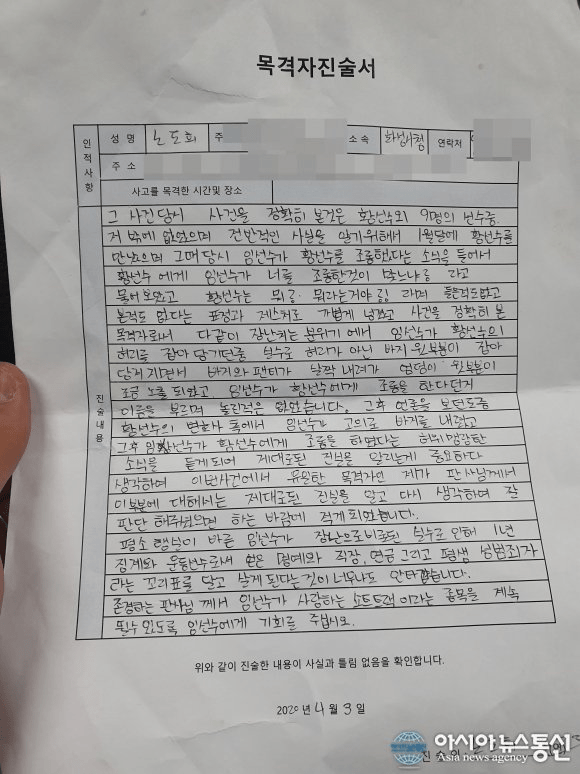 목격자진술서
인적사항
성 명 노도희 주 소속 화성시청 연락처
주 소
사고를 목격한 시간및 장소
진술내용
그 사건당시 사건을 정확히 본것은 황선수외 9명의 선수중
저 밖에 없었으며 전반적인 사실을 알기위해서 1월달에 황선수를
만났으며 그때당시 임선수가 황선수를 조롱했다는 소식을 들어서
황선수 에게 임선수가 너를 조롱한것이 맞느냐 라고
물어보았고 황선수는 뭐 뭐라는거야 라며 들은적도없고
본적도 없다는 표정과 제스처로 가볍게 넘겼고 사건을 정확히 본
목격자로서 다같이 장난치는 분위기에서 임선수가 황선수의
허리를 잡아 당기던중 실수로 허리가 아닌 바지 윗부분이 잡아
당겨지면서 바지와 팬티가 살짝 내려가 엉덩이 윗부분이
조금 노출 되었고 임선수가 황선수에게 조롱을 한다던지
이름을 부르며 놀린적은 없었습니다. 그후 언론을 보던도중
황선수의 변호사 측에서 임선수가 고의로 바지를 내렸고
그후 임선수가 황선수에게 조롱을 하였다는 허위맹랑한
소식을 듣게되어 제대로된 진실을 알리는게 중요하다
생각하여 이번사건에서 유일한 목격자인 제가 판사님께서
이부분에 대해서는 제대로된 진실을 알고 다시 생각하여 잘
판단 해주셨으면 하는 바람에 적게되었습니다.
평소 행실이 바른 임선수가 장난으로비롯된 실수로 인해 1년
징계와 운동선수로서 얻은 명예와 직장, 연금 그리고 평생 성범죄자
라는 꼬리표를 달고 살게 된다는것이 너무나도 안타깝습니다.
존경하는 판사님 께서 임선수가 사랑하는 쇼트트랙 이라는 종목을 계속
할수있도록 임선수에게 기회를 주십시오.
위와 같이 진술한 내용이 사실과 틀림 없음을 확인합니다.
2020 년 4 월 3 일
진 술 인 :
아시아뉴스통신
Asia news agency